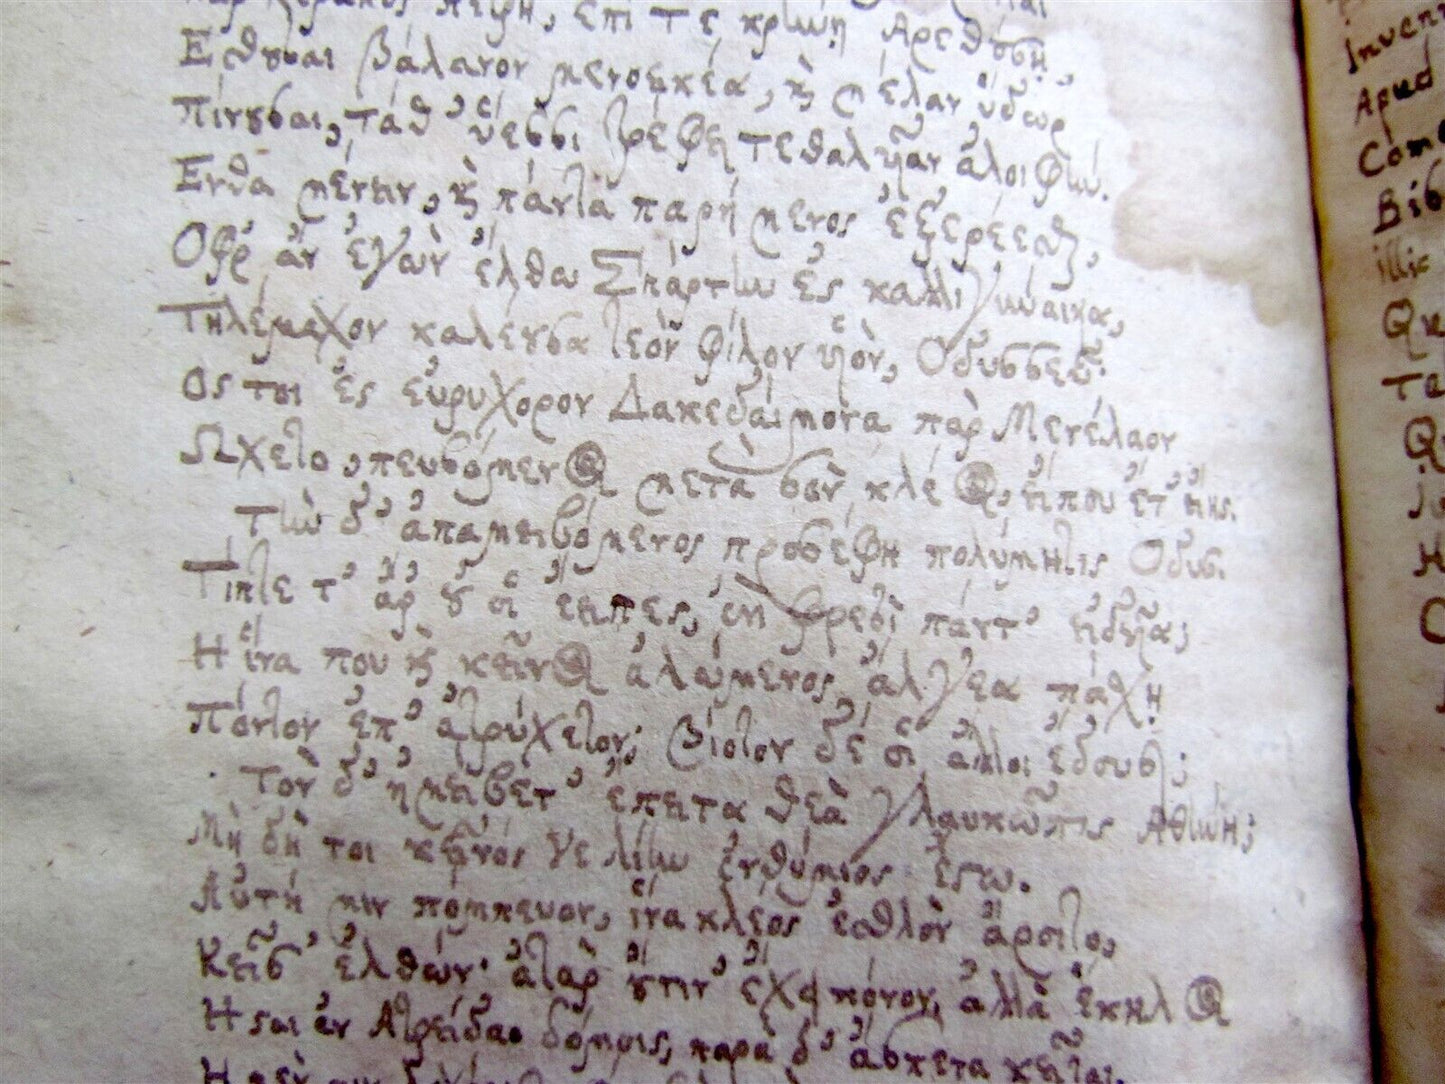 πὰρ Κόρακος πέτρῃ, ἐπί τε κρήνῃ Ἀρεθούσῃ,
Ἔσθουσαι βάλανον μενοεικέα, καὶ μέλαν ὕδωρ
Πίνουσαι, τάθ' ὕεσσι τρέφει τεθαλυῖαν ἀλοιφήν.
Ἔνθα μένειν, καὶ πάντα παρήμενος ἐξερέεσθαι,
Ὄφρ' ἂν ἐγὼν ἔλθω Σπάρτην ἐς καλλιγύναικα,
Τηλέμαχον καλέουσα τεὸν φίλον υἱὸν, Ὀδυσσεῦ·
Ὅς τοι ἐς εὐρύχορον Λακεδαίμονα πὰρ Μενέλαον
Ὤχετο, πευσόμενος μετὰ σὸν κλέος, εἴ που ἔτ' εἴης.
Τὴν δ' ἀπαμειβόμενος προσέφη πολύμητις Ὀδυσ.
Τίπτε τ' ἄρ' οὔ οἱ ἔειπες, ἐνὶ φρεσὶ πάντ' εἰδυῖα;
Ἦ ἵνα που καὶ κεῖνος ἀλώμενος ἄλγεα πάσχῃ
Πόντον ἐπ' ἀτρύγετον; βίοτον δέ οἱ ἄλλοι ἔδουσι;
Τὸν δ' ἠμείβετ' ἔπειτα θεὰ γλαυκῶπις Ἀθήνη;
Μὴ δή τοι κεῖνός γε λίην ἐνθύμιος ἔστω.
Αὐτή μιν πόμπευον, ἵνα κλέος ἐσθλὸν ἄροιτο,
Κεῖσ' ἐλθών· ἀτὰρ οὔτιν' ἔχει πόνον, ἀλλὰ ἕκηλος
Ἧσται ἐν Ἀτρείδαο δόμοις, παρὰ δ' ἄσπετα κεῖται.
Inven
Apud
Com
illic
Τα